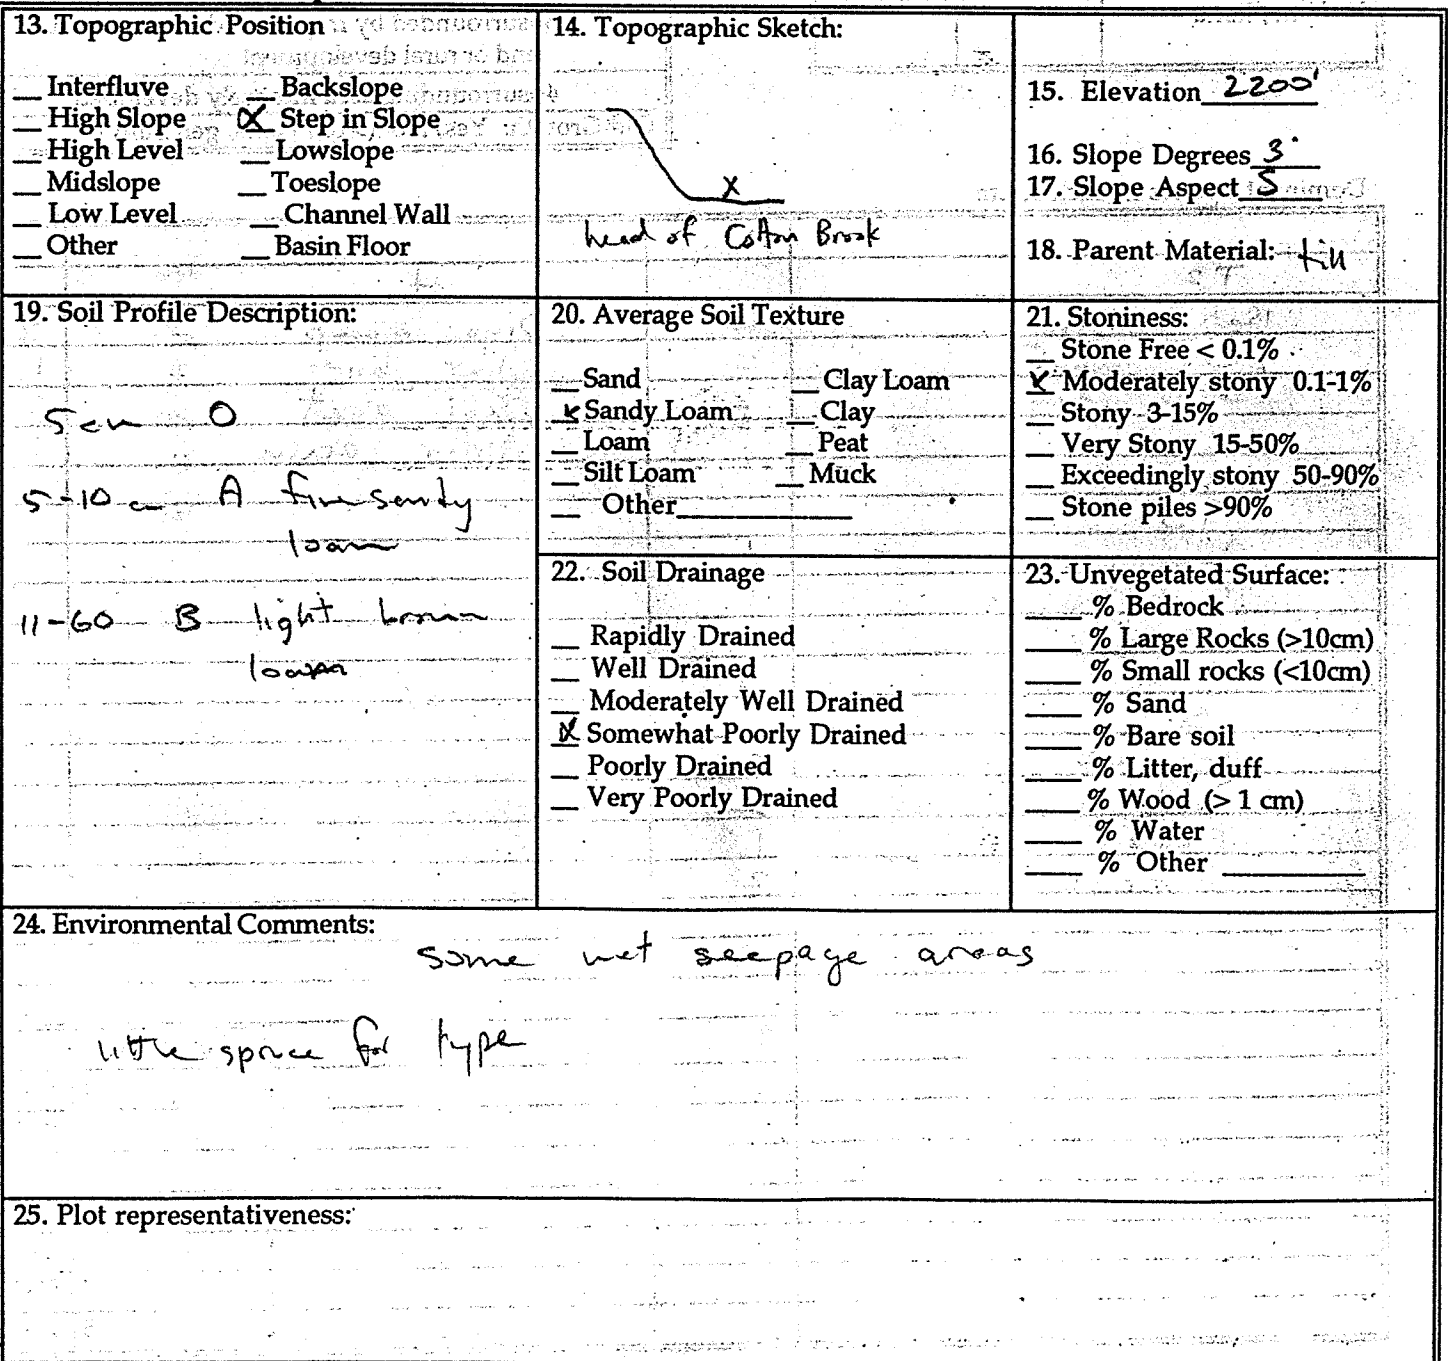 13. Topographic Position
__ Interfluve __ Backslope
__ High Slope X Step in Slope
__ High Level __ Lowslope
__ Midslope __ Toeslope
__ Low Level __ Channel Wall
__ Other __ Basin Floor
14. Topographic Sketch:
X
head of Cotton Brook
15. Elevation 2200'
16. Slope Degrees 3°
17. Slope Aspect S
18. Parent Material: till
19. Soil Profile Description:
5 cm O
5-10 c A fine sandy
loam
11-60 B light brown
loam
20. Average Soil Texture
__ Sand __ Clay Loam
x Sandy Loam __ Clay
__ Loam __ Peat
__ Silt Loam __ Muck
__ Other__________
21. Stoniness:
__ Stone Free < 0.1%
x Moderately stony 0.1-1%
__ Stony 3-15%
__ Very Stony 15-50%
__ Exceedingly stony 50-90%
__ Stone piles >90%
22. Soil Drainage
__ Rapidly Drained
__ Well Drained
__ Moderately Well Drained
X Somewhat Poorly Drained
__ Poorly Drained
__ Very Poorly Drained
23. Unvegetated Surface:
____ % Bedrock
____ % Large Rocks (>10cm)
____ % Small rocks (<10cm)
____ % Sand
____ % Bare soil
____ % Litter, duff
____ % Wood (> 1 cm)
____ % Water
____ % Other __________
24. Environmental Comments:
some wet seepage areas
little spruce for type
25. Plot representativeness: